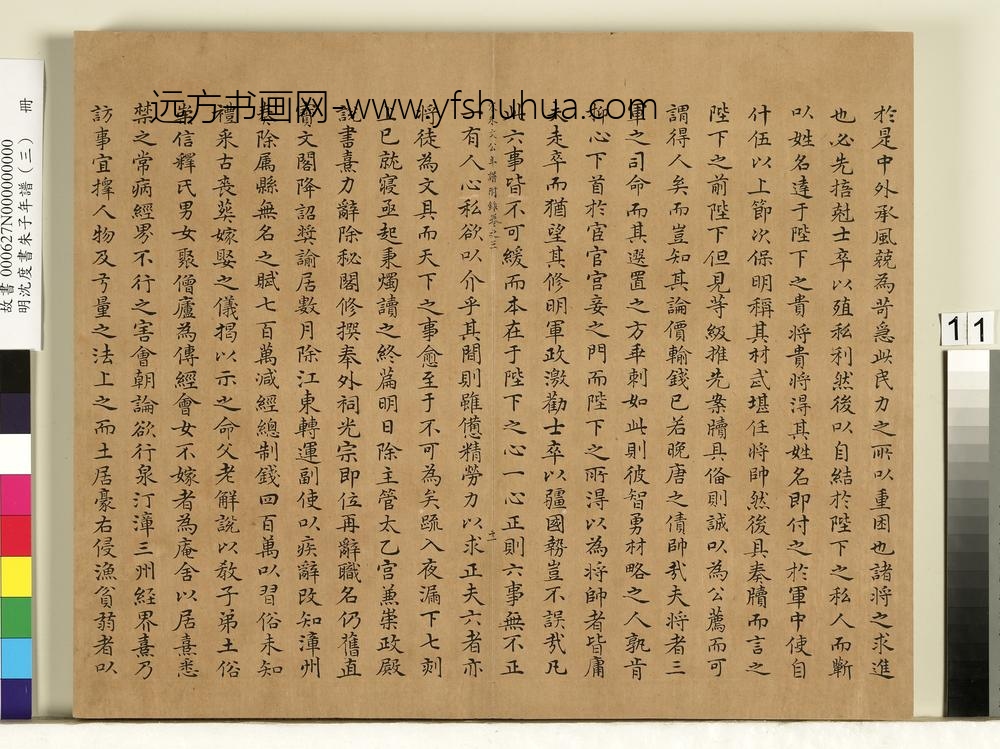 於是中外承風競為苛急此民力之所以重困也諸將之求進
也必先掊尅士卒以殖私利然後以自結於陛下之私人而蘄
以姓名達于陛下之貴將貴將得其姓名即付之於軍中使自
什伍以上節次保明稱其材武堪任將帥然後具奏牘而言之
陛下之前陛下但見等級推先案牘具俻則誠以為公薦而可
謂得人矣而豈知其論價輸錢已若晚唐之債帥哉夫將者三
軍之司命而其選置之方乖剌如此則彼智勇材略之人孰肯
心下首於宦官宮妾之門而陛下之所得以為將帥者皆庸
夫走卒而猶望其修明軍政激勸士卒以疆國勢豈不誤哉凡
此六事皆不可緩而本在于陛下之心一心正則六事無不正
朱文公年譜附錄卷之三 十一
一有人心私欲以介乎其間則雖憊精勞力以求正夫六者亦
將徒為文具而天下之事愈至于不可為矣疏入夜漏下七刻
上已就寢亟起秉燭讀之終篇明日除主管太乙宮兼崇政殿
說書熹力辭除秘閣修撰奉外祠光宗即位再辭職名仍舊直
寶文閣降詔獎諭居數月除江東轉運副使以疾辭改知漳州
奏除属縣無名之賦七百萬減經總制錢四百萬以習俗未知
禮采古喪葬嫁娶之儀揭以示之命父老解說以教子弟土俗
崇信釋氏男女聚僧廬為傳經會女不嫁者為庵舍以居熹悉
禁之常病經界不行之害會朝論欲行泉汀漳三州經界熹乃
訪事宜擇人物及弓量之法上之而土居豪右侵漁貧弱者以
远方书画网-www.yfshuhua.com
故書000627N000000000
明沈度書朱子年譜(三) 冊
11